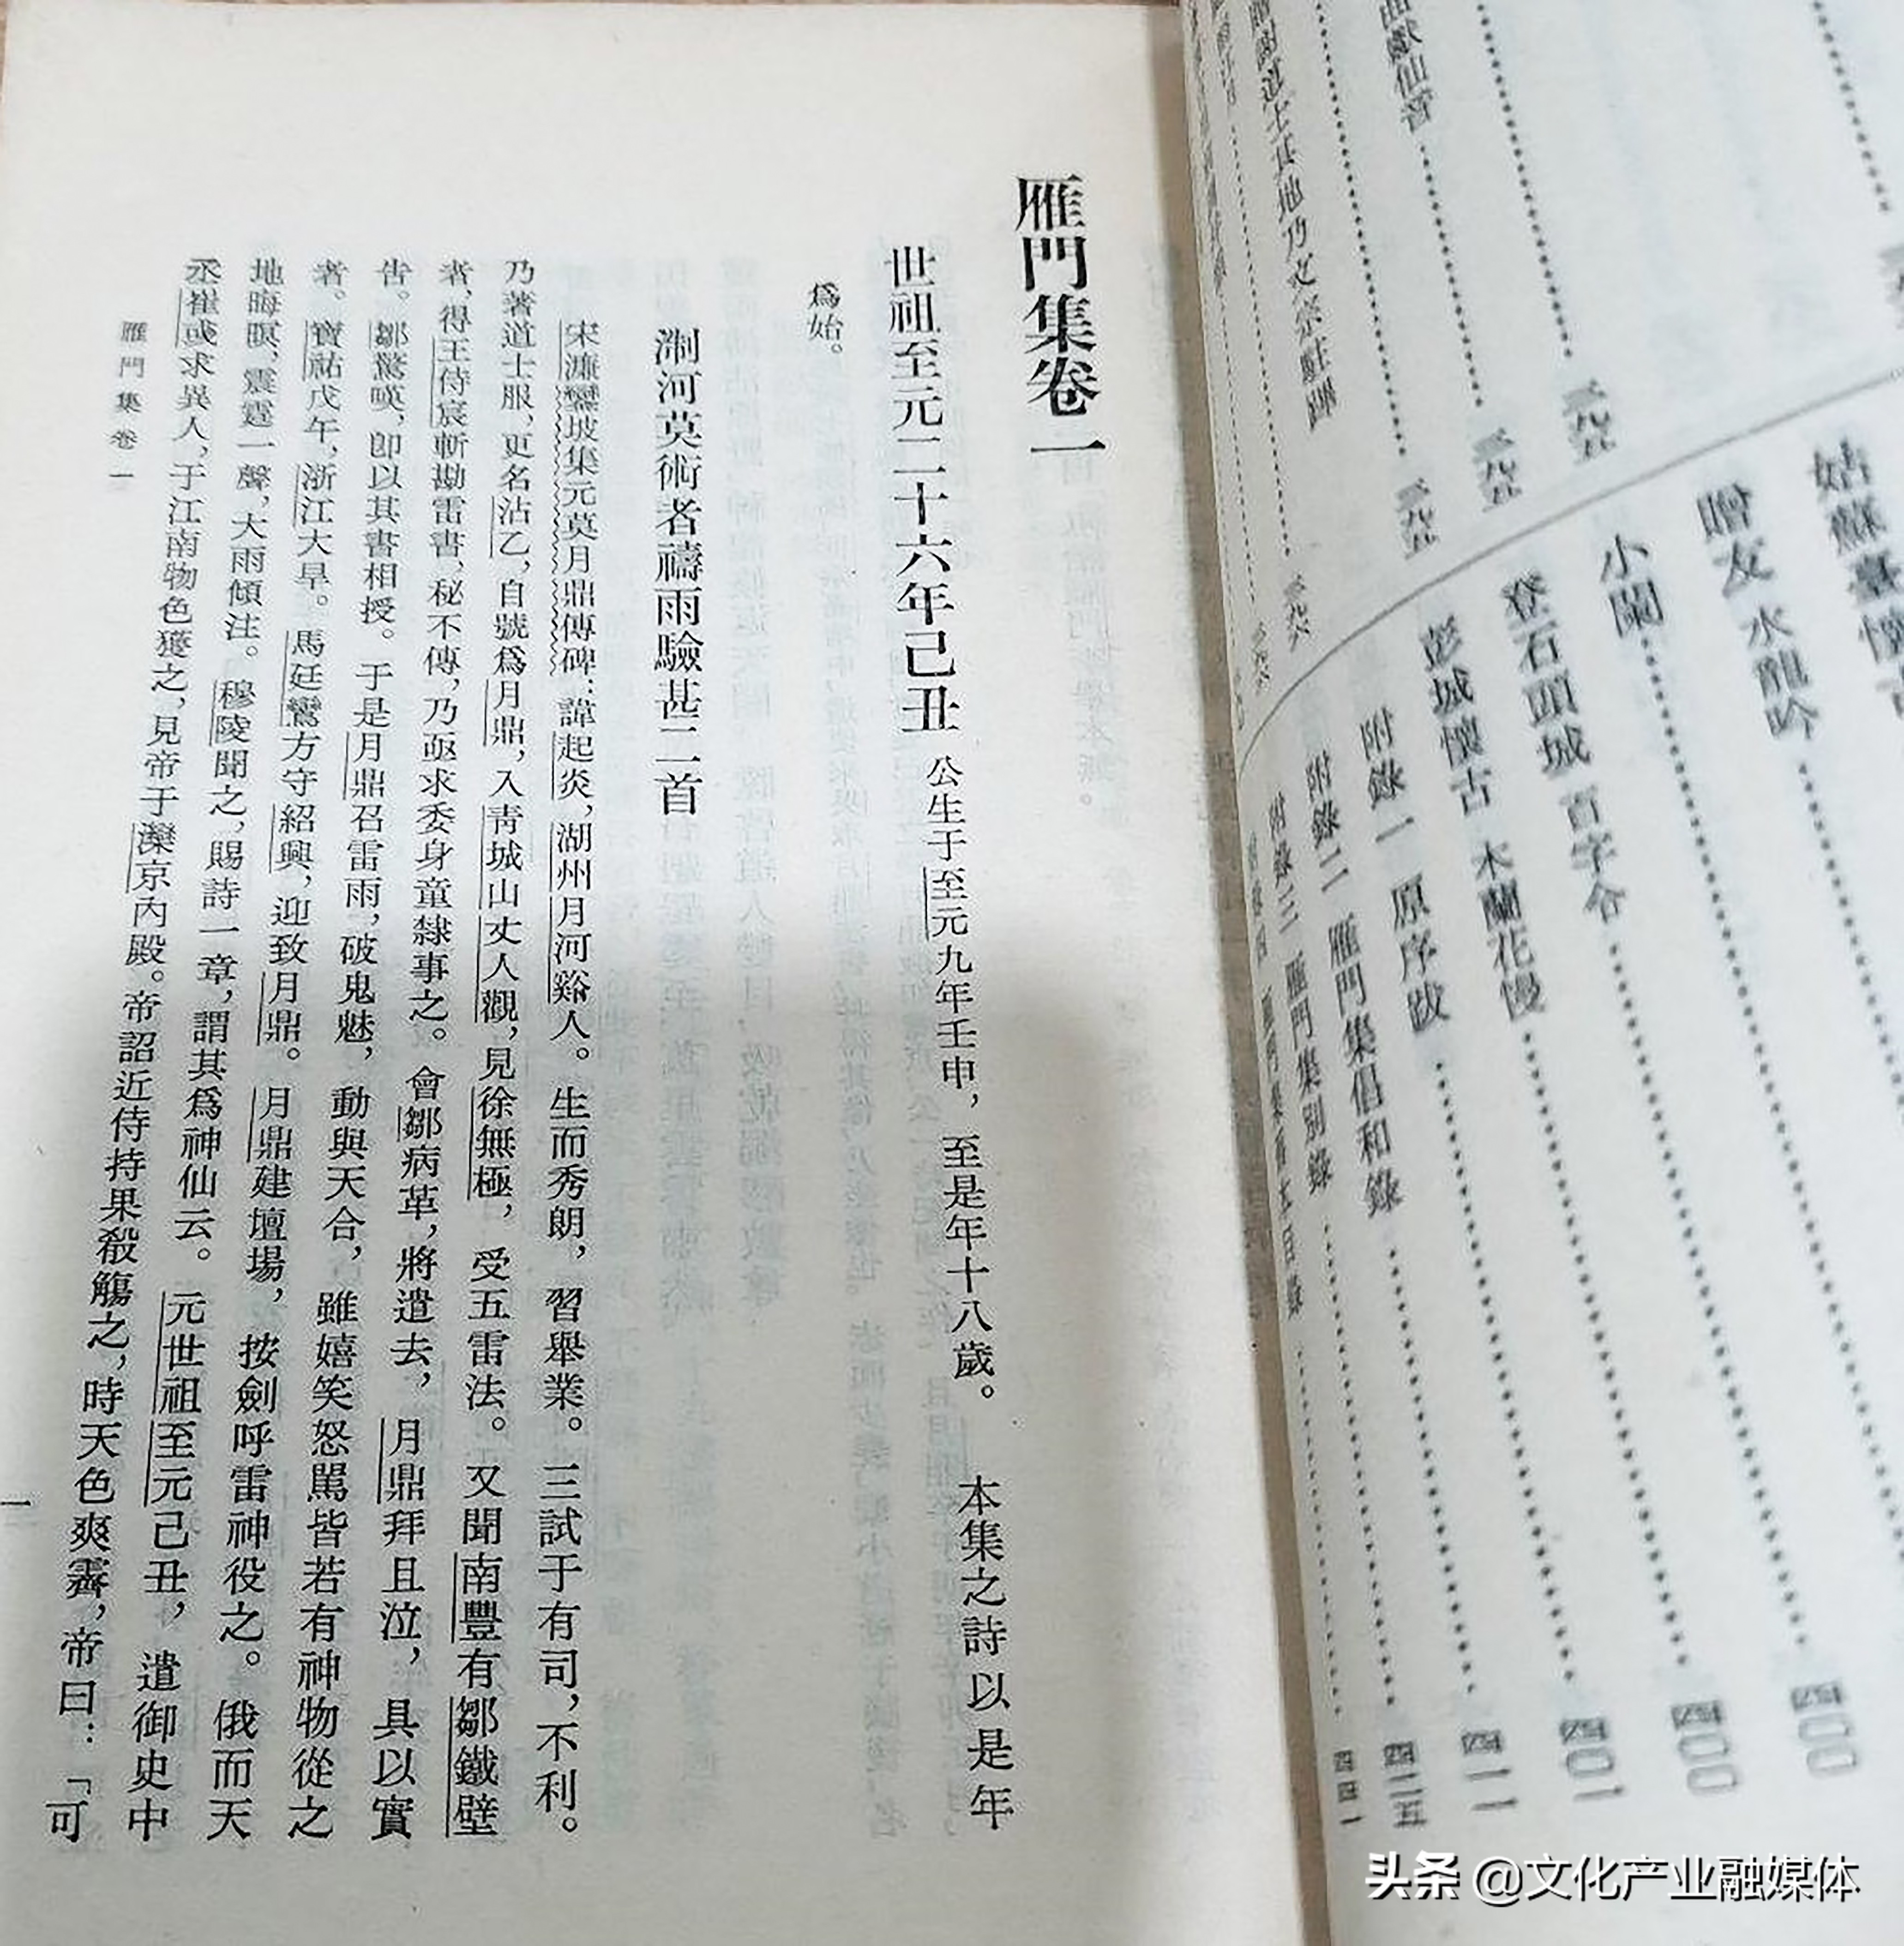 姑蘇臺懷古
贈友 水龍吟 四〇〇
小闌 四〇〇
登石頭城 百字令 四〇一
彭城懷古 木蘭花慢 四一一
附錄一 原序跋
附錄二 雁門集倡和錄 四二五
附錄三 雁門集別錄 四四一
雁門集卷一
世祖至元二十六年己丑 公生于至元九年壬申，至是年十八歲。 本集之詩以是年
爲始。
淛河莫術者禱雨驗甚二首
宋濂鑾坡集元莫月鼎傳碑：諱起炎，湖州月河谿人。生而秀朗，習舉業。三試于有司，不利。
乃著道士服，更名沾乙，自號爲月鼎，入靑城山丈人觀，見徐無極，受五雷法。又聞南豐有鄒鐵壁
者，得王侍宸斬勘雷書，秘不傳，乃亟求委身童隸事之。會鄒病革，將遣去，月鼎拜且泣，具以實
告。鄒驚嘆，卽以其書相授。于是月鼎召雷雨，破鬼魅，動與天合，雖嬉笑怒駡皆若有神物從之
者。寶祐戊午，浙江大旱。馬廷鸞方守紹興，迎致月鼎。月鼎建壇場，按劍呼雷神役之。俄而天
地晦暝，震霆一聲，大雨傾注。穆陵聞之，賜詩一章，謂其爲神仙云。元世祖至元己丑，遣御史中
丞崔彧求異人，于江南物色獲之，見帝于灤京內殿。帝詔近侍持果殽觴之，時天色爽霽，帝曰：「可
雁門集卷一
一
头条 @文化产业融媒体